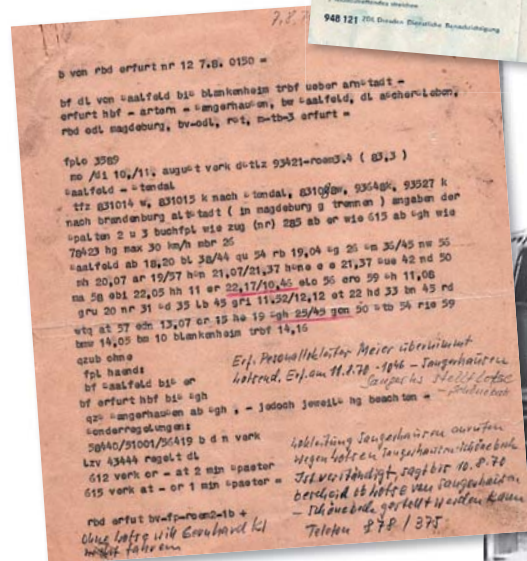 948 121 ZDL Dresden Dienstliche Benachrichtigung
7.8.
b von rbd erfurt nr 12 7.8. 0150 =
bf dl von saalfeld bis blankenheim trbf ueber arnstadt -
erfurt hbf - artern - sangerhausen, bw saalfeld, dl aschersleben,
rbd odl magdeburg, bv-odl, rst, m-tb-3 erfurt =
fplo 3589
mo /di 10./11. august verk dstlz 93421-room3.4 ( 83,3 )
saalfeld - stendal
tfz 831014 w, 831015 k nach stendal, 93648k, 93527 k
nach brandenburg altstadt ( in magdeburg g trennen ) angaben der
spalten 2 u 3 buchfpl wie zug (nr) 285 ab er wie 615 ab sgh wie
78423 hg max 30 km/h mbr 26
saalfeld ab 18,20 bl 38/44 qu 54 rb 19,04 sg 26 sm 36/45 nw 56
mh 20,07 ar 19/57 hsn 21,07/21,37 hsne e e 21,37 sue 42 nd 50
ma 58 ebi 22,05 hh 11 er 22,17/10,46 elo 56 ero 59 sh 11,08
gru 20 nr 31 sd 35 lb 45 gri 11,52/12,12 et 22 hd 33 bn 45 rd
wtg at 57 edn 13,07 or 15 he 19 sgh 25/45 gon 50 stb 54 rie 59
bmw 14,05 bm 10 blankenheim trbf 14,16
qzub ohne
fpl haends
bf saalfeld bis er
bf erfurt hbf bis sgh
qzs sangerhausen ab sgh , - jedoch jeweils hg beachten =
sonderregelungen:
58440/51001/56419 b d n verk
lzv 43444 regelt dl
612 verk or - at 2 min spaeter
615 verk at - or 1 min spaeter =
rbd erfut bv-fp-room2-1b +
Erf. Personallokleiter Meier übernimmt
Lotsend. Erf. am 11.8.70 - 1046 - Sangerhausen
stellt Lotse
- Schönebeck
Lokleitung Sangerhausen anrufen
wegen Lotsen Sangerhausen-Schönebeck
Ist verständigt, sagt bis 10.8.70
bescheid ob Lotse von Sangerhausen
- Schönebeck gestellt werden kann
Telefon 878 / 375
Ohne Lotse will
nicht fahren